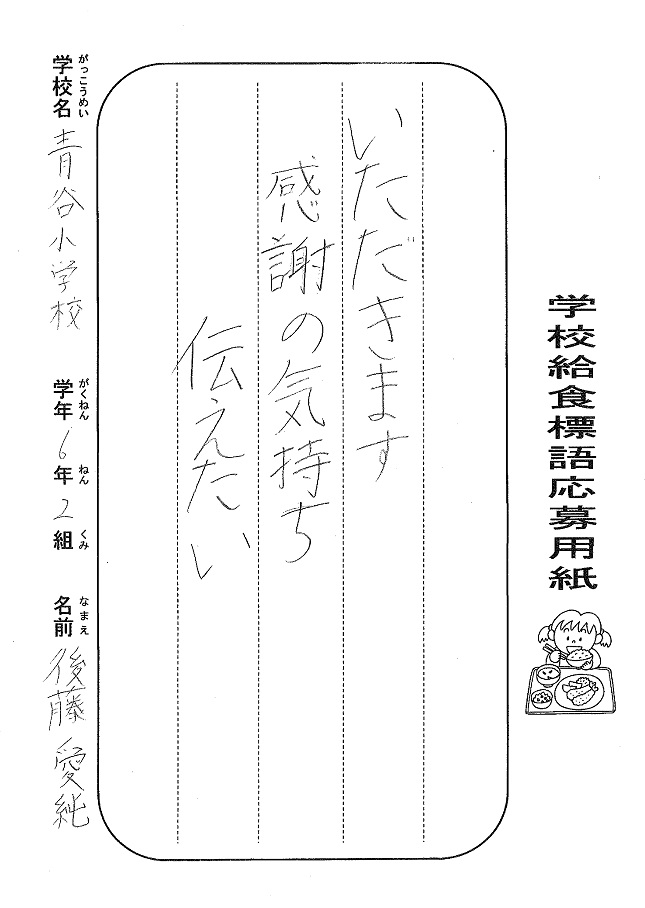 学校給食標語応募用紙
いただきます
感謝の気持ち
伝えたい
がっこうめい
学校名 青谷小学校
がくねん ねん くみ
学年 6年 2組
なまえ
名前 後藤愛純